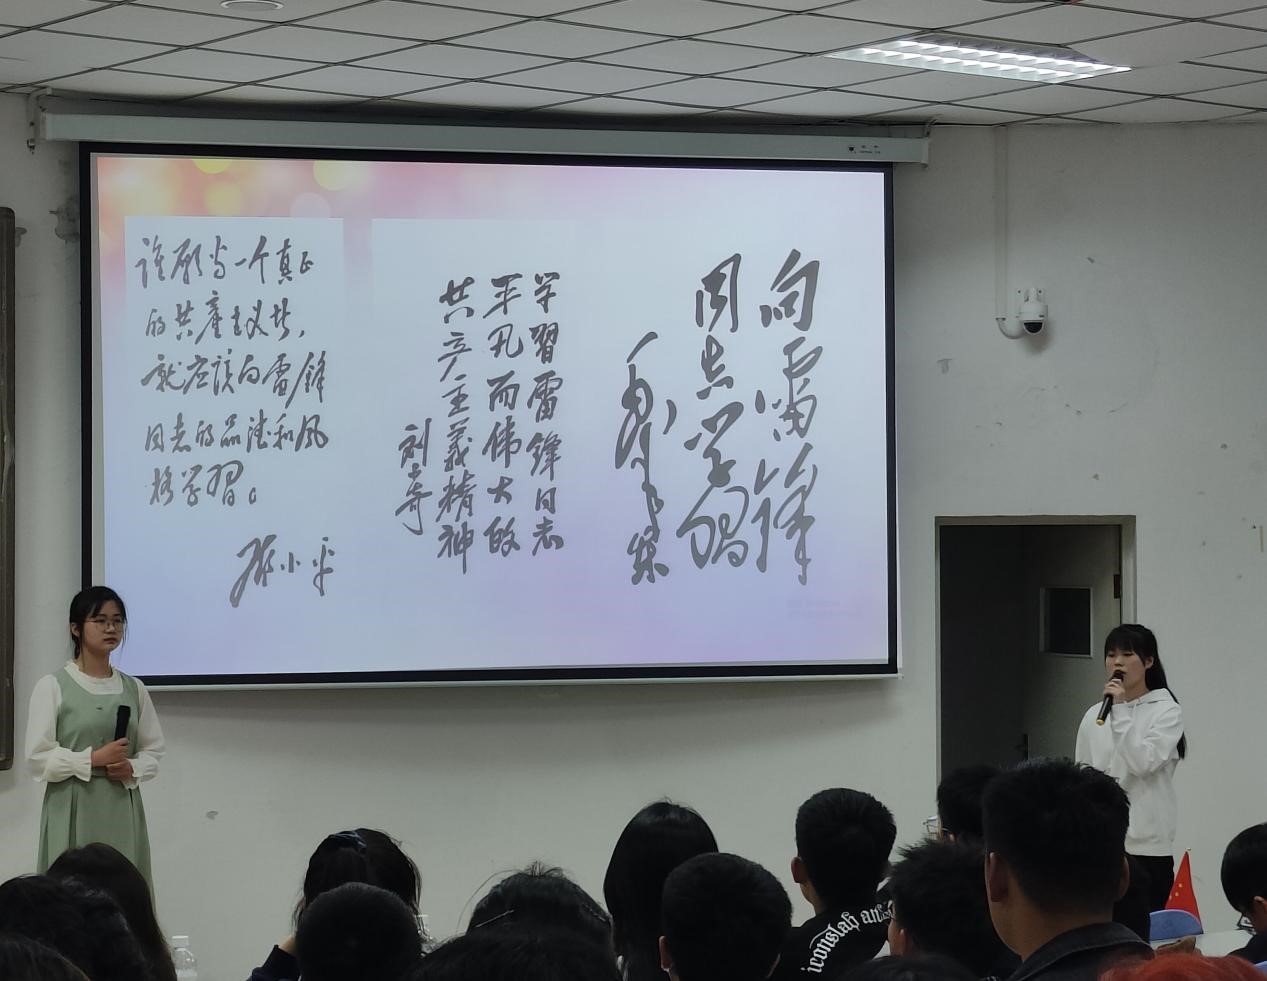 谁愿当一个真正
的共产主义者，
就应该向雷锋
同志的品德和风
格学习。
邓小平
学習雷锋同志
平凡而伟大的
共产主義精神
刘少奇
向雷锋
同志学习
毛泽东
iconslab ansi